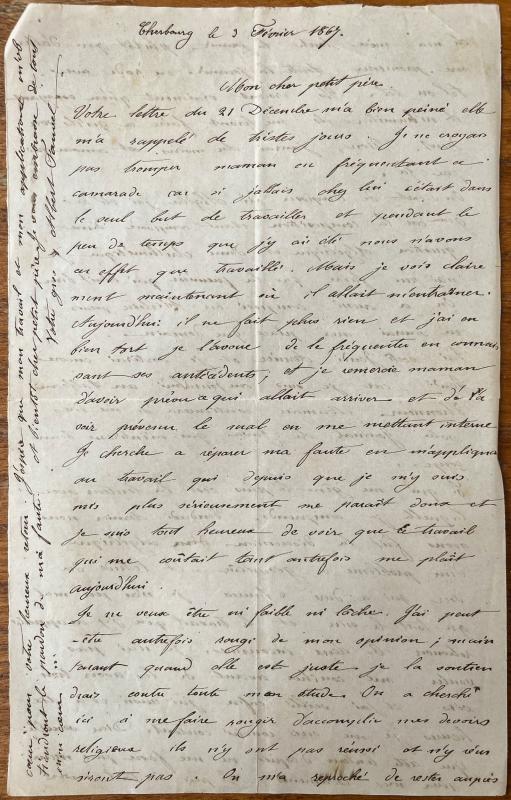 Cherbourg le 3 Février 1867.
Mon cher petit père
Votre lettre du 21 Décembre m'a bien peiné elle
m'a rappelé de tristes jours. Je ne croyais
pas tromper maman en fréquentant ce
camarade car si j'allais chez lui c'était dans
le seul but de travailler et pendant le
peu de temps que j'y ai été nous n'avons
en effet que travaillé. Mais je vois claire-
ment maintenant où il allait m'entraîner.
Aujourd'hui il ne fait plus rien et j'ai eu
bien tort je l'avoue de le fréquenter en connais
sant ses antécédents, et je remercie maman
d'avoir prévu ce qui allait arriver et d'
voir prévenu le mal en me mettant interne
Je cherche a réparer ma faute en m'appliquant
au travail qui depuis que je m'y suis
mis plus sérieusement me paraît doux et
je suis tout heureux de voir que ce travail
qui me coûtait tant autrefois me plaît
aujourd'hui.
Je ne veux être ni faible ni lâche. J'ai peut
-être autrefois rougi de mon opinion; main
tenant quand elle est juste je la soutien
drais contre toute mon étude. On a cherché
ici à me faire rougir d'accomplir mes devoirs
religieux ils n'y ont pas réussi et n'y réus
siront pas. On m'a reproché de rester auprès
cœur pour votre heureux retour. J'espère que mon travail et mon application
tiendront le pardon de ma faute. et bientôt cher petit père je vous embrasse de tout
mon cœur Votre gros Albert